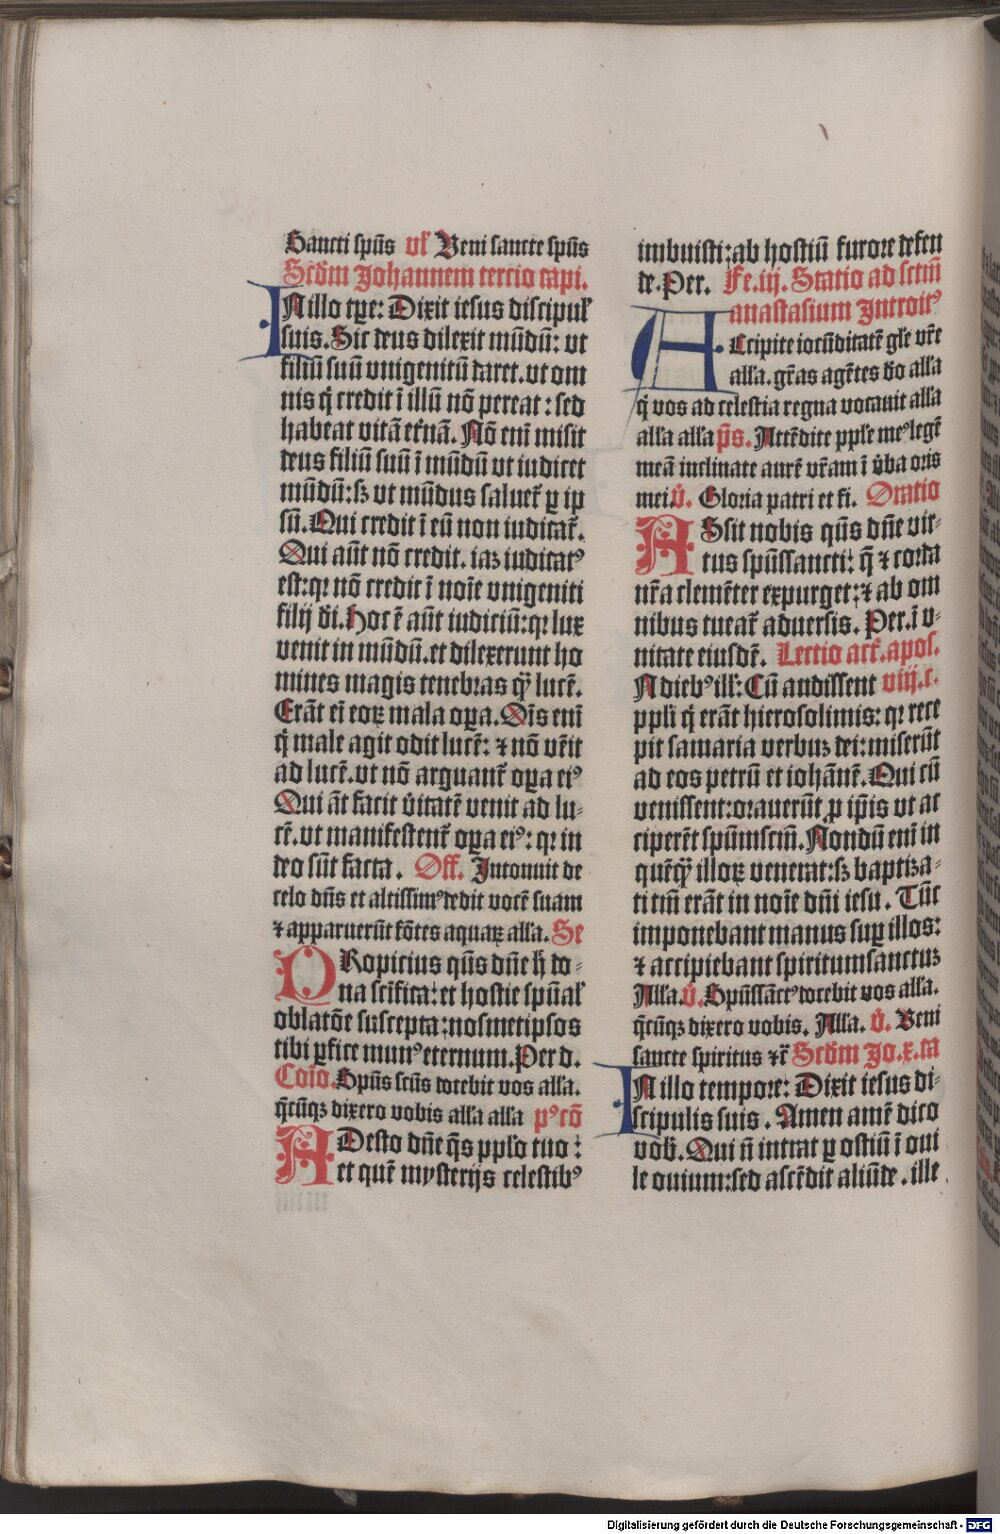 Sancti sp̄us vl̄ Veni sancte sp̄us
Scd̄m Johannem tercio capi.
IN illo tꝑe: Dixit iesus discipul̄
suis. Sic deus dilexit mūdū: vt
filiū suū vnigenitū daret. vt om
nis q̄ credit ī illū nō pereat: sed
habeat vitā et̄nā. Nō eni misit
deus filiū suū ī mūdū vt iudicet
mūdū: sꝫ vt mūdus saluet̄ ꝑ ip
sū. Qui credit ī eū non iudicat̄.
Qui aūt nō credit. iaꝫ iudicatꝰ
est: qꝛ nō credit ī noīe vnigeniti
filij dī. Hoc ē aūt iudiciū: qꝛ lux
venit in mūdū. et dilexerunt ho
mines magis tenebras qᷓ lucē.
Erāt eī eoꝝ mala oꝑa. Oīs eni
q̄ male agit odit lucē: ⁊ nō vēit
ad lucē. vt nō arguant̄ oꝑa eiꝰ
Qui āt facit v̄itatē venit ad lu⸗
cē. vt manifestent̄ oꝑa eiꝰ: qꝛ in
deo sūt facta. Off. Intonuit de
celo dn̄s et altissimꝰ dedit vocē suam
⁊ apparuerūt fōtes aquaꝝ all̄a. Se
PRopicius qs̄ dn̄e h̄ do⸗
na sc̄ifica: et hostie sp̄ual̄
oblatōe suscepta: nosmetipsos
tibi ꝑfice munꝰ eternum. Per d.
Cōio. Sp̄us sc̄us docebit vos all̄a.
q̄cūqꝫ dixero vobis all̄a all̄a pꝰcō
ADesto dn̄e qs̄ ppl̄o tuo:
et quē mysterijs celestibꝰ
imbuisti: ab hostiū furore defen
de. Per. Fe. iij. Statio ad sctm̄
anastasium Introitꝰ
ACcipite iocūditatē gl̄e vr̄e
all̄a. gr̄as agētes d̄o all̄a
q̄ vos ad celestia regna vocauit all̄a
all̄a all̄a ps̄. Attēdite pple meꝰ legē
meā inclinate aurē vr̄am ī v̄ba oris
mei v̄. Gloria patri et fi. Oratio
ASsit nobis qs̄ dn̄e vir⸗
tus sp̄ussancti: q̄ ⁊ corda
nr̄a clemēter expurget: ⁊ ab om
nibus tueat̄ aduersis. Per. ī v⸗
nitate eiusdē. Lectio act̄. apos.
N diebꝰ ill̄: Cū audissent viij. c.
ppl̄i q̄ erāt hierosolimis: qꝛ rece
pit samaria verbuꝫ dei: miserūt
ad eos petrū et iohānē. Qui cū
venissent: orauerūt ꝓ ip̄is vt ac
ciperēt sp̄umsctm̄. Nondū eni in
quēqᷓ illoꝝ venerat: sꝫ baptiza⸗
ti tm̄ erāt in noīe dn̄i iesu. Tūc
imponebant manus suꝑ illos:
⁊ accipiebant spiritumsanctuꝫ
All̄a. v̄. Sp̄ussāctꝰ docebit vos all̄a.
q̄cūqꝫ dixero vobis. All̄a. v̄. Veni
sancte spiritus ⁊c̄ Scd̄m Jo. x. ca
IN illo tempore: Dixit iesus di⸗
scipulis suis. Amen amē dico
vob̄. Qui n̄ intrat ꝑ ostiū ī oui
le ouium: sed ascēdit aliūde. ille
Digitalisierung gefördert durch die Deutsche Forschungsgemeinschaft - DFG